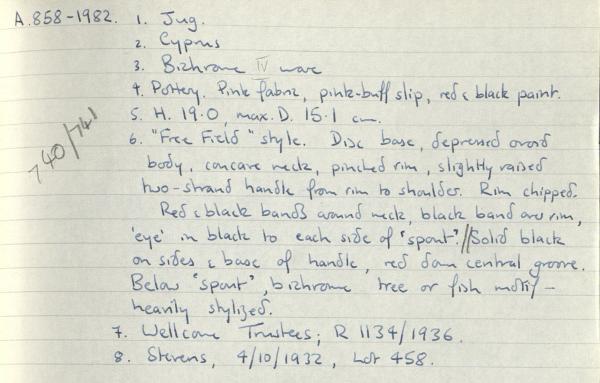 A.858-1982. 1. Jug.
2. Cyprus
3. Bichrome IV ware
4. Pottery. Pink fabric, pink-buff slip, red & black paint.
5. H. 19.0, max. D. 15.1 cm.
740/741
6. "Free Field" style. Disc base, depressed ovoid
body, concave neck, pinched rim, slightly raised
two-strand handle from rim to shoulder. Rim chipped.
Red & black bands around neck, black band over rim,
'eye' in black to each side of "spout". // Solid black
on sides & base of handle, red down central groove.
Below "spout", bichrome tree or fish motif -
heavily stylized.
7. Wellcome Trustees; R 1134/1936.
8. Stevens, 4/10/1932, Lot 458.